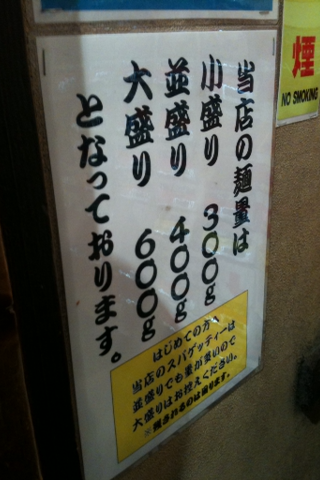 当店の麺量は
小盛り 300g
並盛り 400g
大盛り 600g
となっております。
はじめての方へ
当店のスパゲッティーは
並盛りでも量が多いので
大盛りはお控えください。
※残されるのは困ります。
煙
NO SMOKING